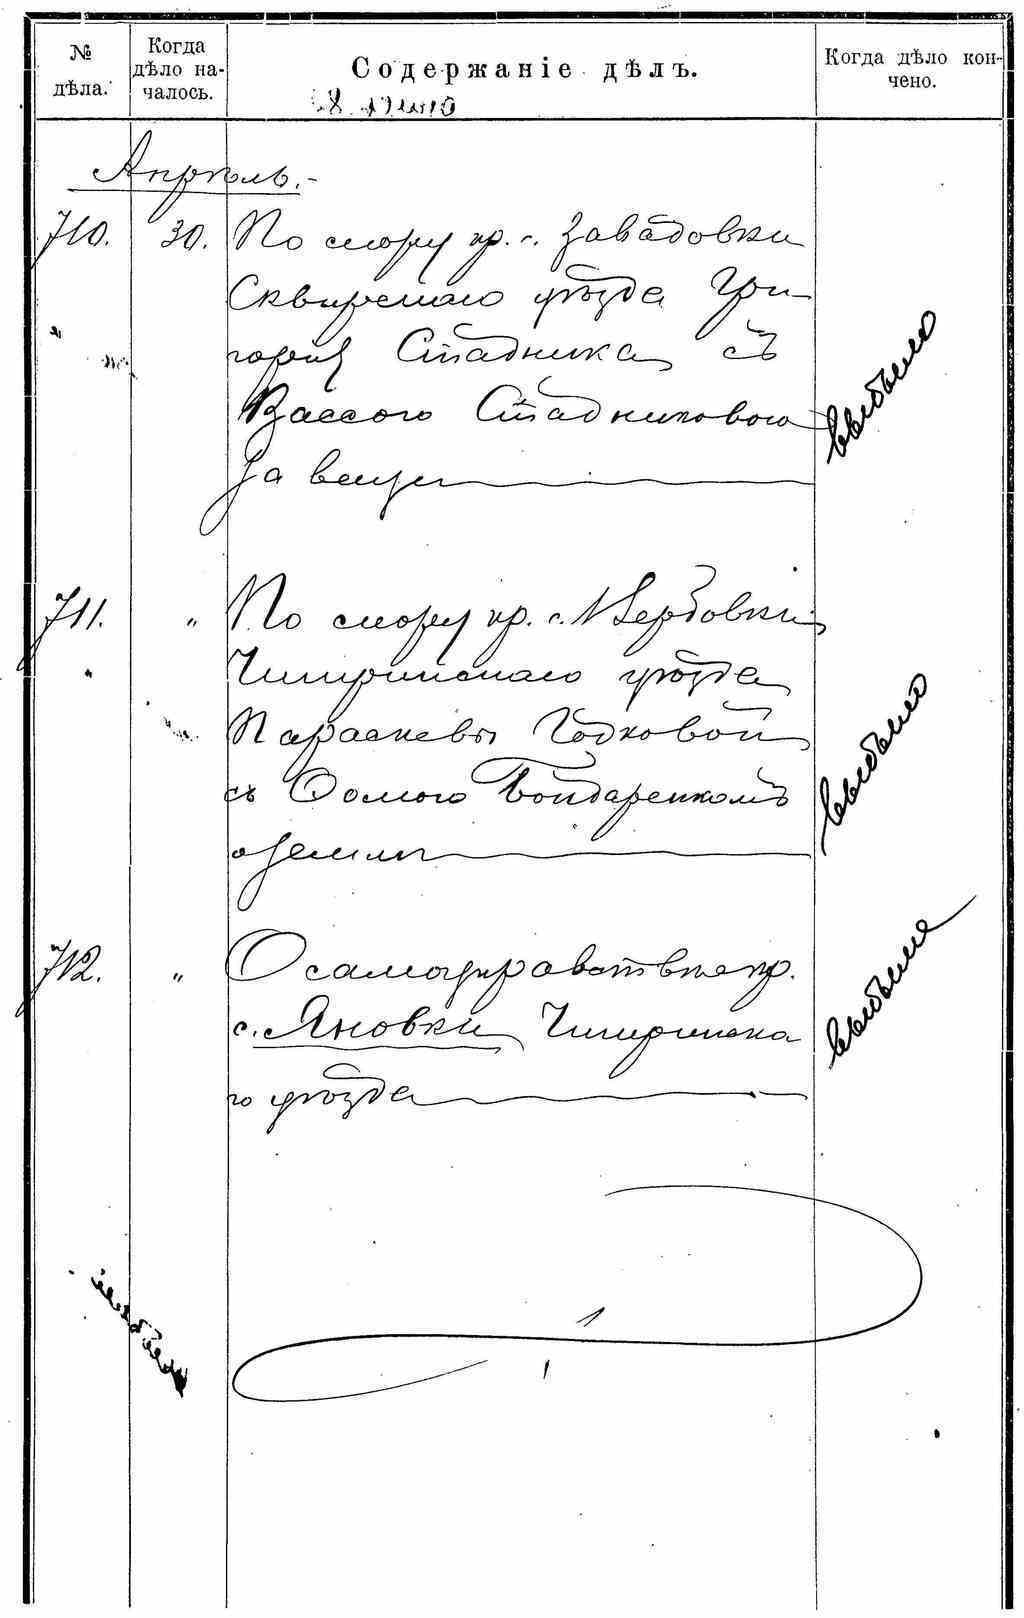 № дѣла.
Когда дѣло на-
чалось.
Содержаніе дѣлъ.
Когда дѣло кон-
чено.
Апрѣль.-
710. 30. По спору кр. с. Завадовки
Сквирскаго уѣзда Гри-
горія Стадника съ
Вассою Стадниковою
за вещи
выбыло
711. " По спору кр. с. Вербовки
Чигиринскаго уѣзда
Параскевы Годковой
съ Ѳомою Бондаренкомъ
о земли
выбыло
712. " О самоуправствѣ кр.
с. Яновки Чигиринска
го уѣзда
выбыло